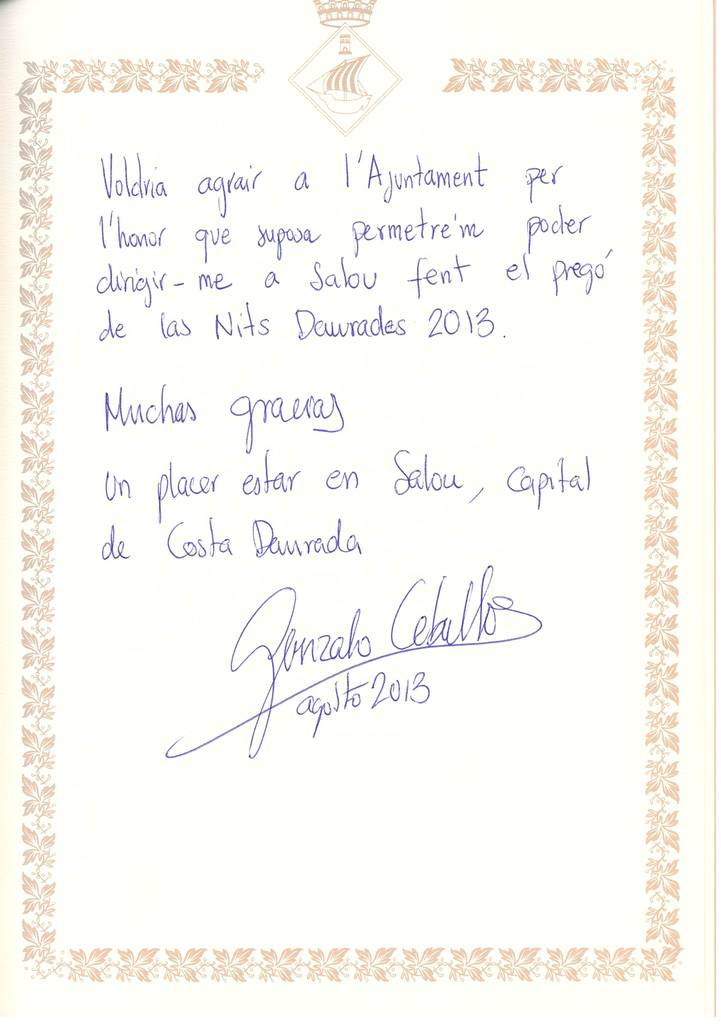 Voldria agrair a l'Ajuntament per
l'honor que suposa permetre'm poder
dirigir-me a Salou fent el pregó
de las Nits Daurades 2013.
Muchas gracias
Un placer estar en Salou, capital
de Costa Daurada
Gonzalo Ceballos
agosto 2013